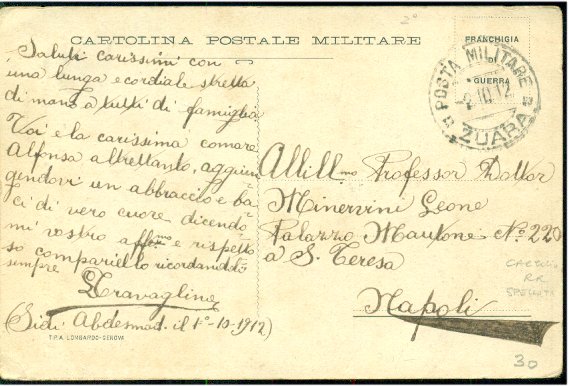 CARTOLINA POSTALE MILITARE
FRANCHIGIA
GUERRA
POSTA MILITARE
ZUARA
10.12
Saluti carissimi con
una lunga e cordiale stretta
di mano a tutti di famiglia
Voi e la carissima comare
Alfonsa altrettanto, aggiun
gendovi un abbraccio e ba
ci di vero cuore dicendo
mi vostro affmo e rispetto
so compariello ricordandolo
sempre
Travaglino
(Sidi Abdesmad. il 1°-10-1912)
T.P.A. LOMBARDO-GENOVA
All'Ill mo Professor Dottor
Minervini Leone
Palazzo Mautone N° 220
a S. Teresa
Napoli
RR
30